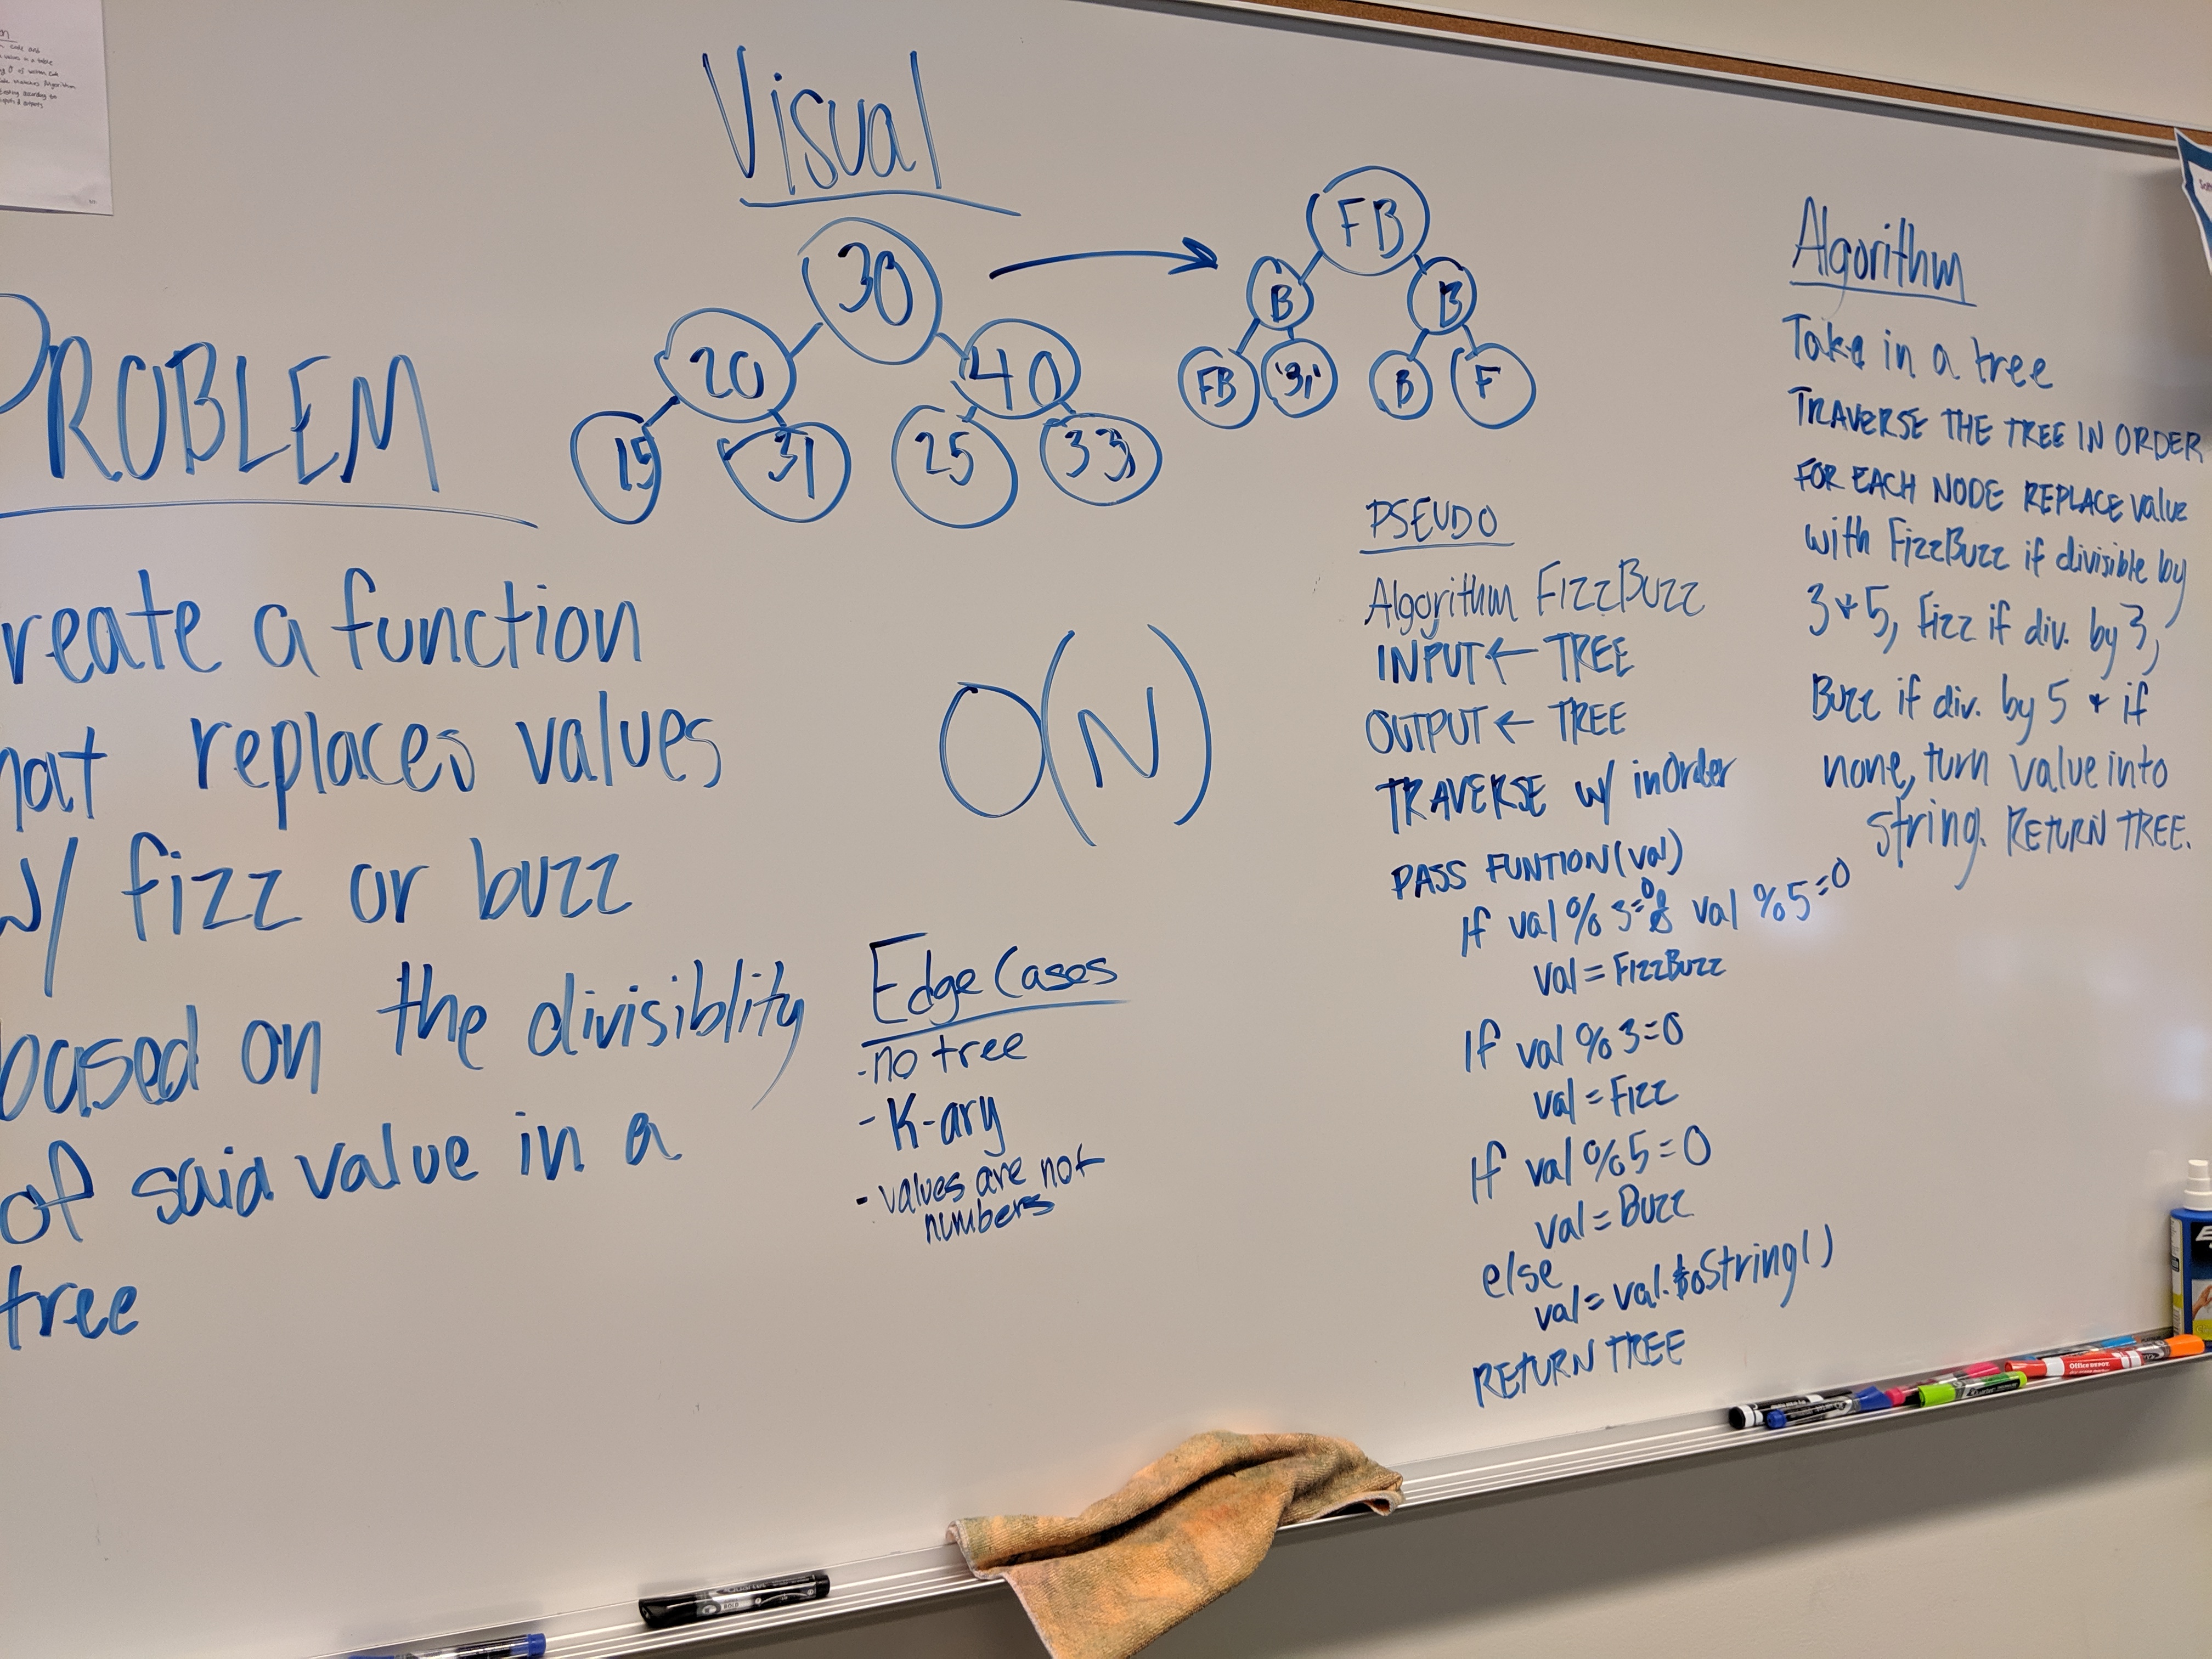 Visual
30
20
40
15
31
25
33
FB
B
B
FB
'31'
B
F
PROBLEM
reate a function
hat replaces values
w/ fizz or buzz
based on the divisiblity
of said value in a
tree
O(N)
Edge Cases
- no tree
- K-ary
- values are not
numbers
PSEUDO
Algorithm FizzBuzz
INPUT ← TREE
OUTPUT ← TREE
TRAVERSE w/ inOrder
PASS FUNTION(val)
If val % 3=0 & val %5=0
val = FizzBuzz
If val %3=0
val = Fizz
If val %5=0
val = Buzz
else
val = val.toString()
RETURN TREE
Algorithm
Take in a tree
TRAVERSE THE TREE IN ORDER
FOR EACH NODE REPLACE value
with FizzBuzz if divisible by
3 + 5, Fizz if div. by 3,
Buzz if div. by 5 + if
none, turn value into
string. RETURN TREE.
Office DEPOT